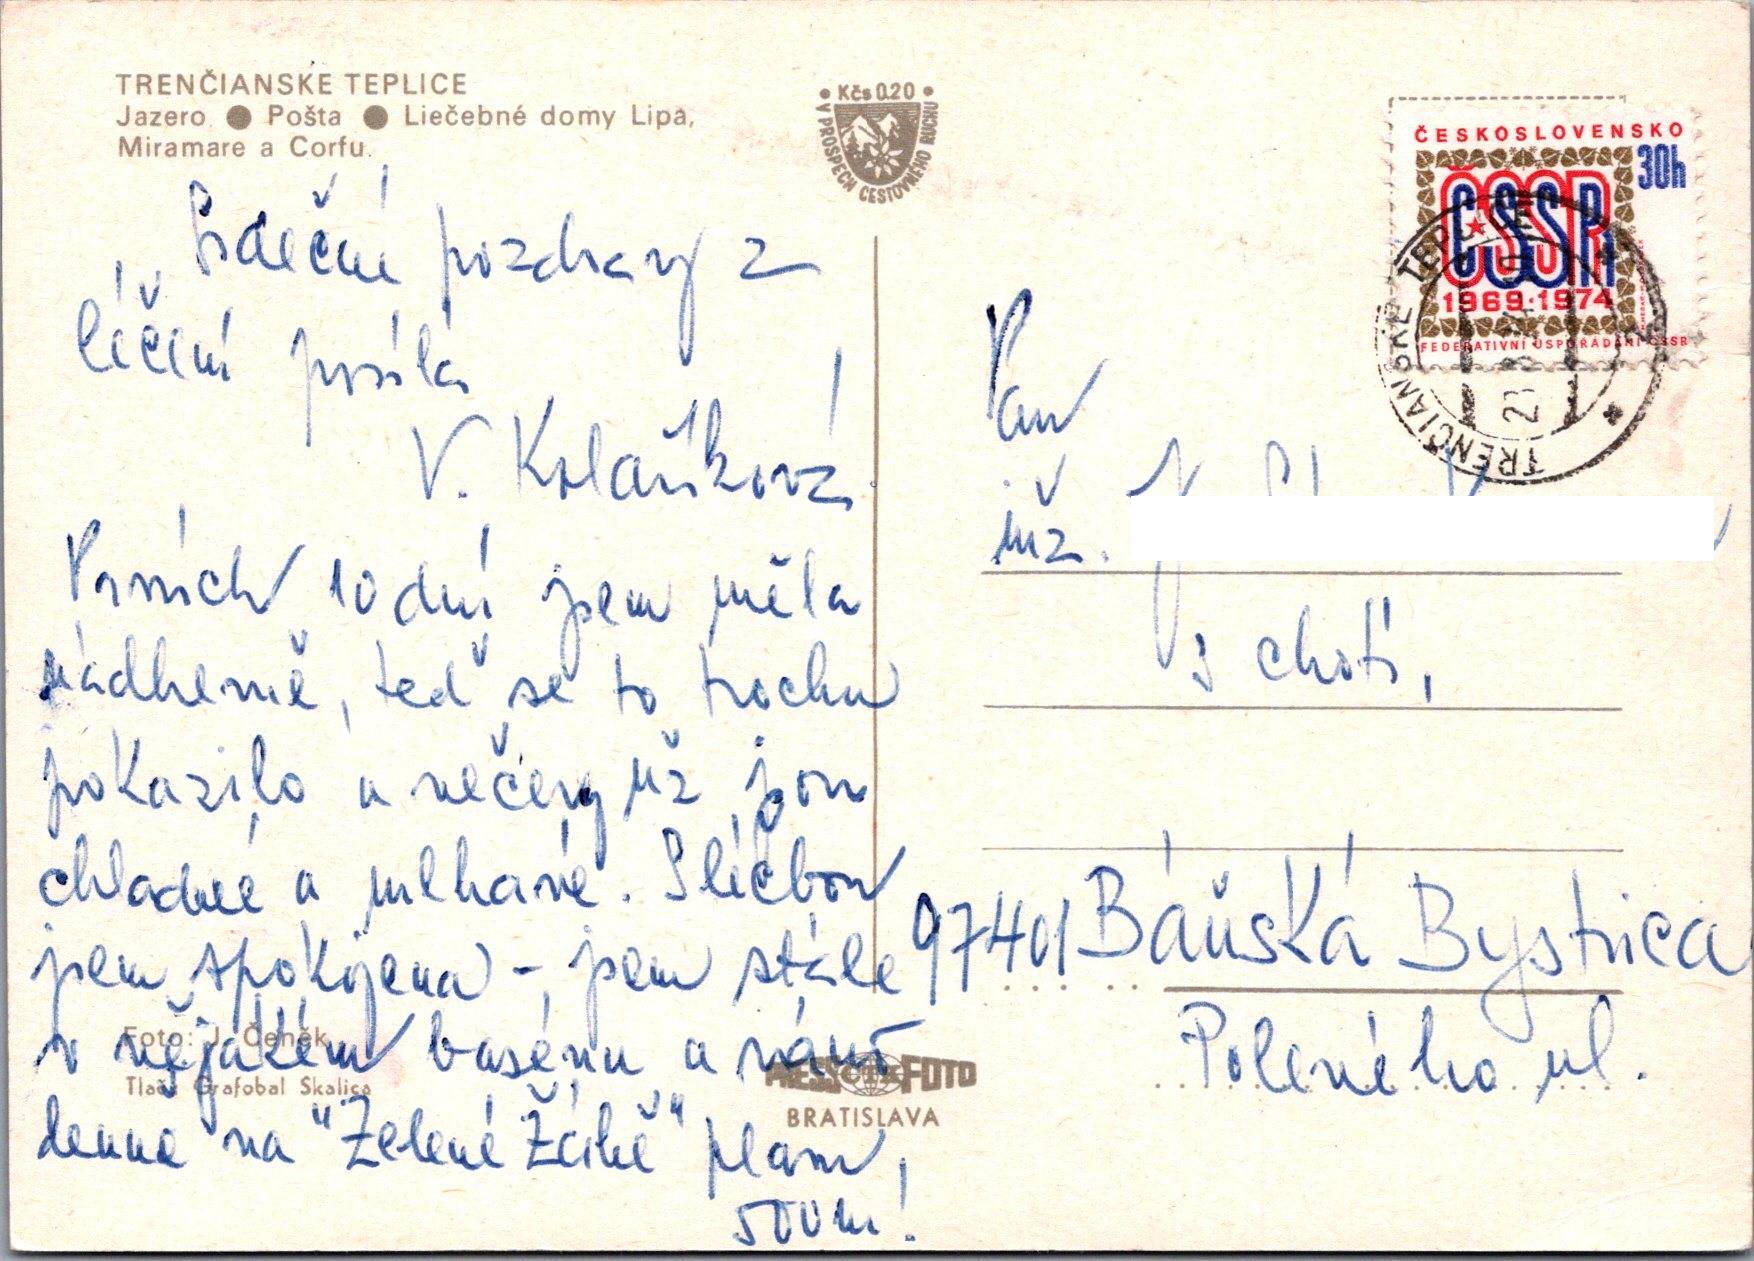 TRENČIANSKE TEPLICE
Jazero ● Pošta ● Liečebné domy Lipa,
Miramare a Corfu.
• Kčs 0.20 •
V PROSPECH CESTOVNÉHO RUCHU
ČESKOSLOVENSKO
30h
ČSSR
1969·1974
FEDERATIVNÍ USPOŘÁDÁNÍ ČSSR
TRENČIANSKE TEPLICE
Srdečné pozdravy z
léčení posílá
V. Kolaříková
Prvních 10 dní jsem měla
nádherně, teď se to trochu
pokazilo a večery už jsou
chladné a mlhavé. S léčbou
jsem spokojena - jsem stále
v nějakém basénu a
denně na "Zelené Žábě" plavu,
500m!
Pan
inž.
s chotí,
97401 Báňská Bystrica
Poleného ul.
Foto: J. Čeněk
Tlač: Grafobal Skalica
PRESSFOTO
BRATISLAVA